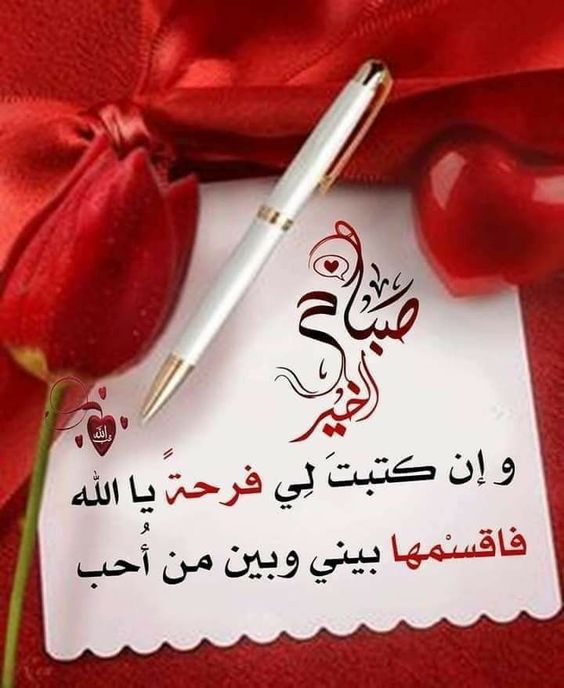 صباح
الخير
الله
و إن كتبتَ لِي فرحةً يا الله
فاقسْمها بيني وبين من أُحب